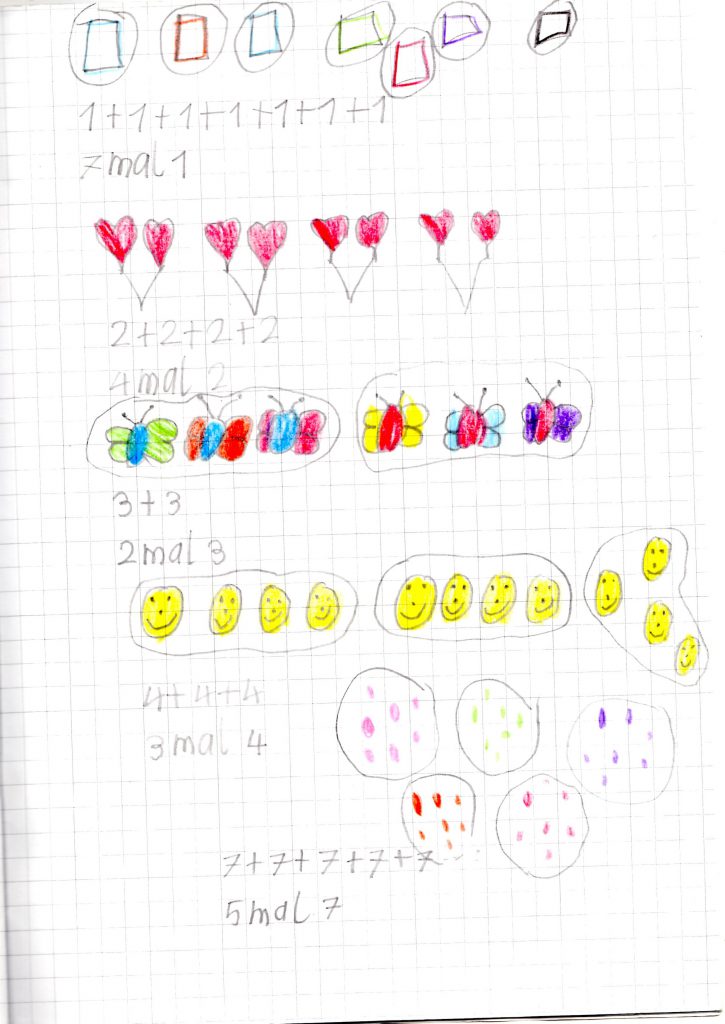 1+1+1+1+1+1+1
7mal 1
2+2+2+2
4mal 2
3+3
2mal 3
4+4+4
3mal 4
7+7+7+7+7
5mal 7